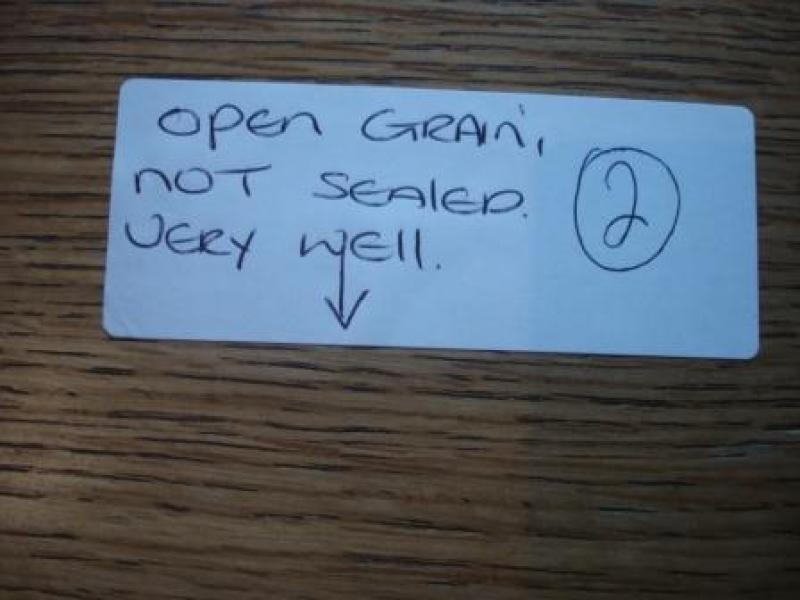 OPEN GRAIN,
NOT SEALED.
VERY WELL.
2